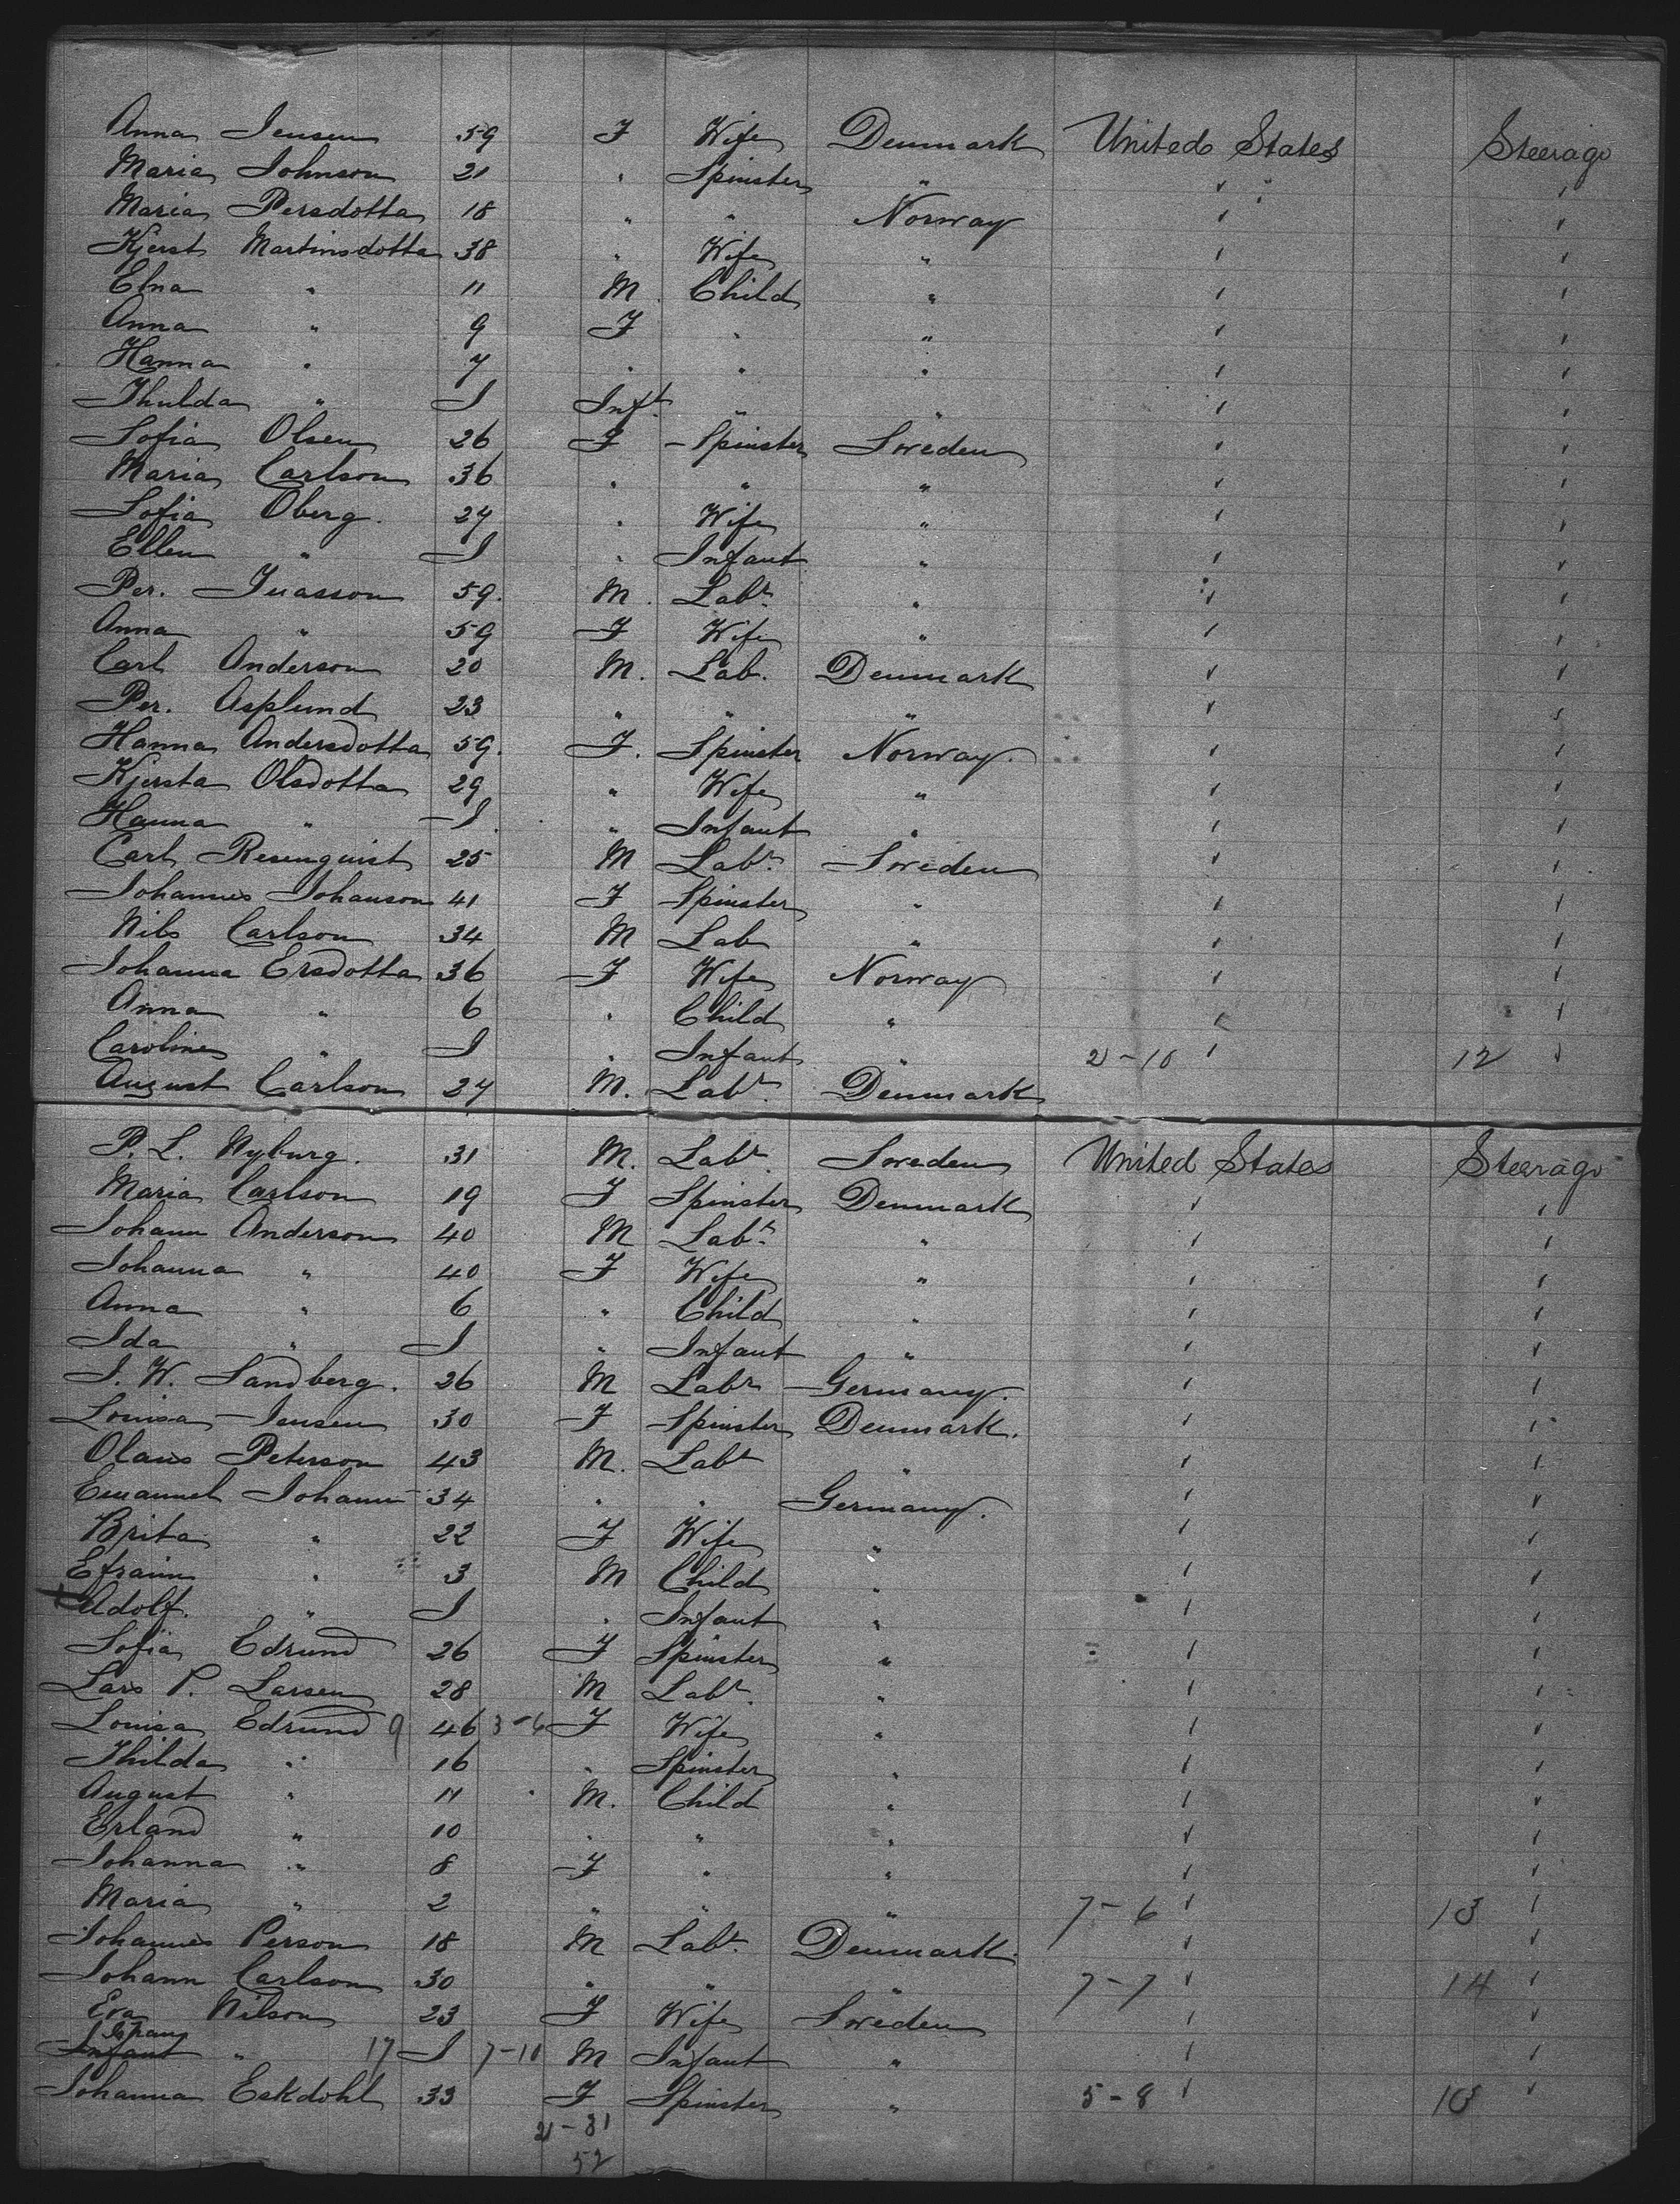 Anna Jensen 59 F Wife Denmark United States Steerage
Maria Johnson 21 " Spinster " " "
Maria Persdotta 18 " " Norway " "
Kjerst Martinsdotta 38 " Wife " " "
Elna " 11 M Child " " "
Anna " 9 F " " " "
Hanna " 7 " " " " "
Thulda " I Inft " " " "
Sofia Olsen 26 F Spinster Sweden " "
Maria Carlson 36 " " " " "
Sofia Oberg. 27 " Wife " " "
Ellen " I " Infant " " "
Per. 59. M. Labr. " " "
Anna " 59 F Wife " " "
Carl Anderson 20 M. Lab. Denmark " "
Per. Asplund 23 " " " " "
Hanna Andersdotta 59. F. Spinster Norway. " "
Kjersta Olsdotta 29 " Wife " " "
Hanna " I. " Infant " " "
Carl Resenquist 25 M Labr. Sweden " "
Johannes Johanson 41 F Spinster " " "
Nils Carlson 34 M Lab " " "
Johanna Ersdotta 36 F Wife Norway " "
Anna " 6 " Child " " "
Caroline " I " Infant " 2-10 " 12 "
August Carlson 27 M. Labr. Denmark
P. L. Nyburg. 31 M. Labr. Sweden United States Steerage
Maria Carlson 19 F Spinster Denmark " "
Johann Anderson 40 M Labr. " " "
Johanna " 40 F Wife " " "
Anna " 6 " Child " " "
Ida " I " Infant " " "
J. W. Sandberg. 26 M Labr Germany. " "
Louisa Jensen 30 F Spinster Denmark. " "
Olaus Peterson 43 M. Labr " " "
Emanuel Johann 34 " " Germany. " "
Brita " 22 F Wife " " "
Efraim " 3 M Child " " "
Adolf. " I " Infant " " "
Sofia Edrund 26 F Spinster " " "
Lars P. Larsen 28 M Labr. " " "
Louisa Edrund 9 46 3-6 F Wife " " "
Thilda " 16 " Spinster " " "
August " 11 M. Child " " "
Erland " 10 " " " " "
Johanna " 8 F " " " "
Maria " 2 " " " 7-6 " 13 "
Johannes Person 18 M Labr. Denmark. " "
Johann Carlson 30 " " " 7-7 " 14 "
Eva Nilson 23 F Wife Sweden " "
Infant " 17 I 7-10 M Infant " " "
Johanna Eskdohl 33 F Spinster " 5-8 " 10 "
21-31
52